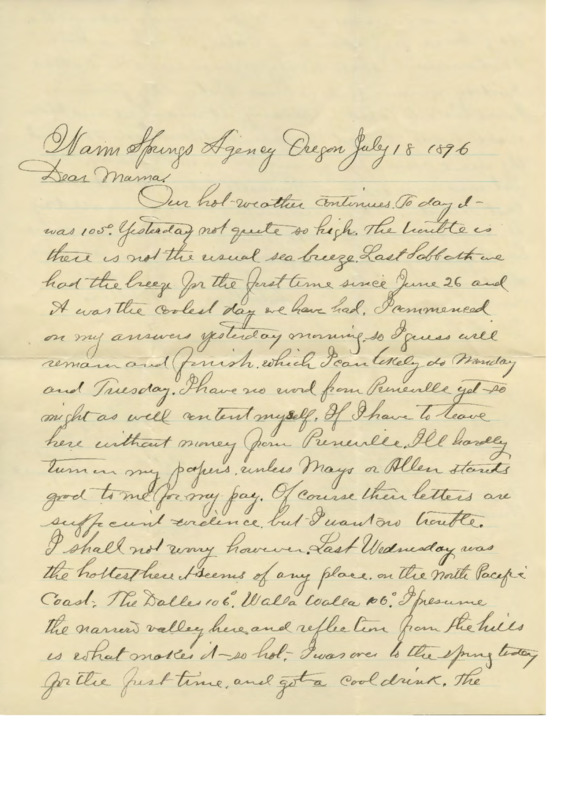 Warm Springs Agency Oregon July 18 1896
Dear Mama,
Our hot weather continues. To day it
was 105°. Yesterday not quite so high. The trouble is
there is not the usual sea breeze. Last Sabbath we
had the breeze for the first time since June 26 and
it was the coolest day we have had. I commenced
on my answers yesterday morning, so I guess will
remain and finish, which I can likely do Monday
and Tuesday. I have no word from Prineville yet so
might as well content myself. If I have to leave
here without money from Prineville, I'll hardly
turn in my papers, unless Mays or Allen stands
good to me for my pay. Of course their letters are
sufficient evidence, but I want no trouble.
I shall not worry however. Last Wednesday was
the hottest here it seems of any place on the North Pacific
Coast. The Dalles 106°. Walla Walla 106°. I presume
the narrow valley here, and reflection from the hills
is what makes it so hot. I was over to the spring today
for the first time, and got a cool drink. The